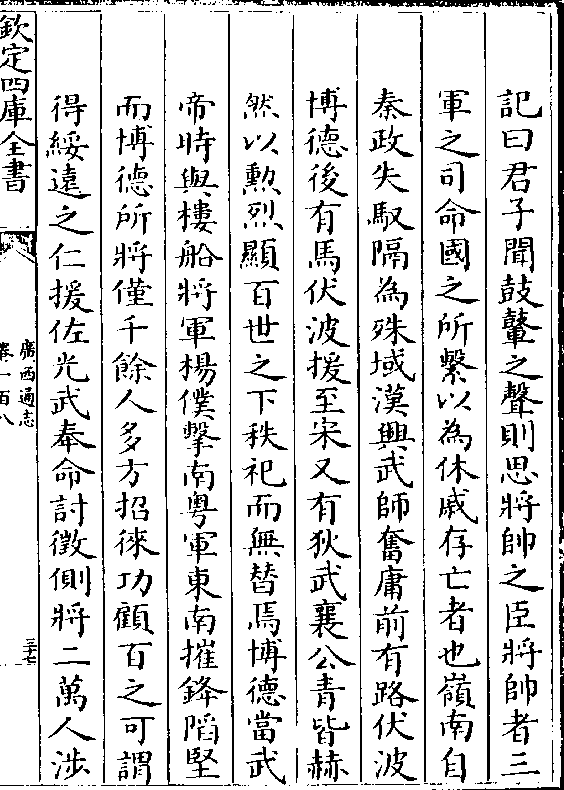 記曰君子聞鼓鼙之聲則思將帥之臣將帥者三
軍之司命國之所繫以為休戚存亡者也嶺南自
秦政失馭隔為殊域漢興武師奮庸前有路伏波
博德後有馬伏波援至宋又有狄武襄公青皆赫
然以勲烈顯百世之下秩祀而無替焉博德當武
帝時與樓船將軍楊僕擊南粤軍東南摧鋒陷堅
而博德所將僅千餘人多方招徠功顧百之可謂
得綏遠之仁援佐光武奉命討徵側將二萬人涉
欽定四庫全書
廣西通志
卷一百八
三七